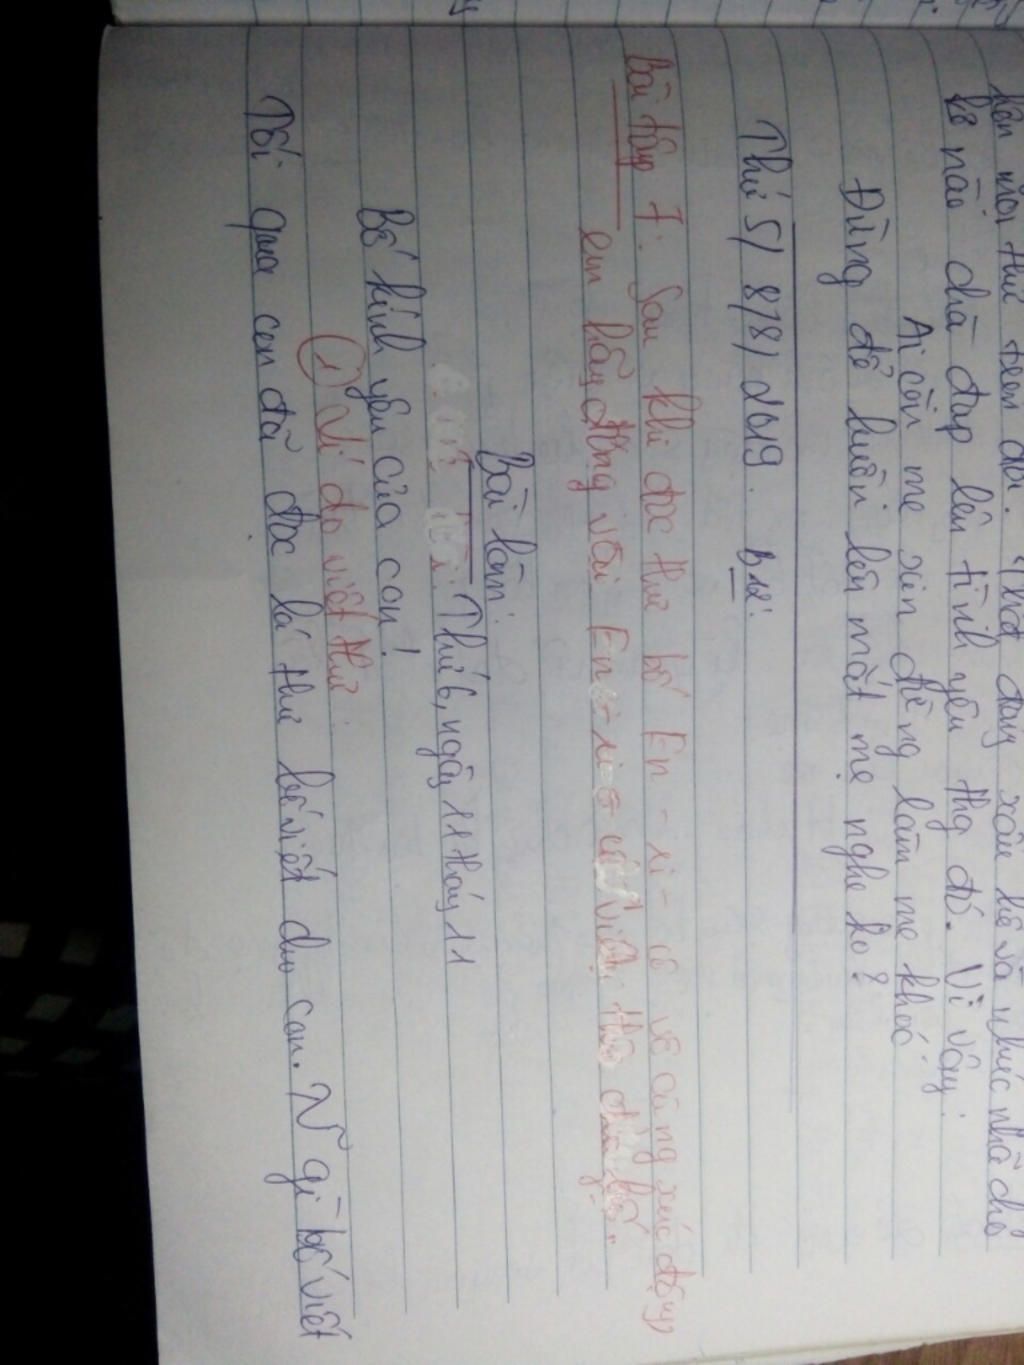 kẻ nào chà đạp lên tình yêu thg đó. Vì vậy:
Ai còn mẹ xin đừng làm mẹ khóc
Đừng để buồn lên mắt mẹ nghe ko?
Thứ 5/ 8/8/ 2019. B12:
Bài tập 7: Sau khi đọc thư bố En-ri-cô vô cùng xúc động,
em hãy đóng vai En-ri-cô viết thư cho bố.
Bài làm:
Thứ 6, ngày 11 tháy 11
Bố kính yêu của con!
(1) Lí do viết thư:
Tối qua con đã đọc lá thư bố viết cho con. N~ gì bố viết